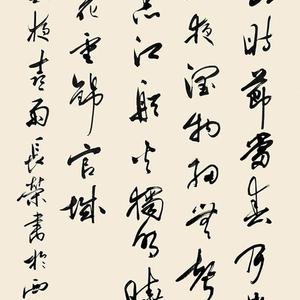 時節當春乃
夜潤物細無聲
黑江船火獨明曉
花重錦官城
夜喜雨長榮書於西